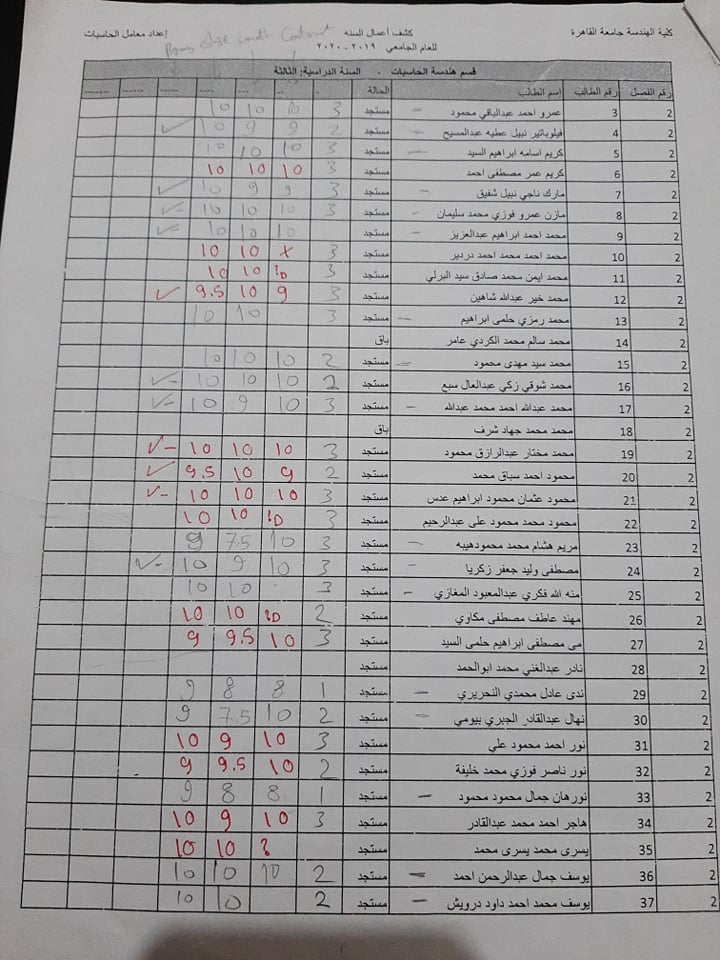 كلية الهندسة جامعة القاهرة كشف أعمال السنه إعداد معامل الحاسبات
للعام الجامعي ٢٠١٩ - ٢٠٢٠
قسم هندسة الحاسبات - السنة الدراسية: الثالثة
رقم الفصل رقم الطالب إسم الطالب الحالة
2 3 عمرو احمد عبدالباقي محمود مستجد 3 10 10 10
2 4 فيلوباتير نبيل عطيه عبدالمسيح مستجد 2 9 9 10 ✓
2 5 كريم اسامه ابراهيم السيد مستجد 3 10 10 10
2 6 كريم عمر مصطفى احمد مستجد 3 10 10 10
2 7 مارك ناجي نبيل شفيق مستجد 3 9 9 10 ✓
2 8 مازن عمرو فوزي محمد سليمان مستجد 3 10 10 10 ✓-
2 9 محمد احمد ابراهيم عبدالعزيز مستجد 10 10 10 ✓-
2 10 محمد احمد محمد احمد دردير مستجد 3 x 10 10
2 11 محمد ايمن محمد صادق سيد البرلي مستجد 3 10 10
2 12 محمد خير عبدالله شاهين مستجد 3 9 10 9.5 ✓
2 13 محمد رمزي حلمى ابراهيم مستجد 3 10 10
2 14 محمد سالم محمد الكردي عامر باق
2 15 محمد سيد مهدى محمود مستجد 2 10 10 10
2 16 محمد شوقي زكي عبدالعال سبع مستجد 2 10 10 10 ✓-
2 17 محمد عبدالله احمد محمد عبدالله مستجد 3 10 9 10 ✓-
2 18 محمد محمد جهاد شرف باق
2 19 محمد مختار عبدالرازق محمود مستجد 3 10 10 10 ✓-
2 20 محمود احمد سباق محمد مستجد 2 9 10 9.5 ✓
2 21 محمود عثمان محمود ابراهيم عدس مستجد 3 10 10 10 ✓-
2 22 محمود محمد محمود على عبدالرحيم مستجد 3 10 10
2 23 مريم هشام محمد محمودهيبه مستجد 3 10 7.5 9
2 24 مصطفى وليد جعفر زكريا مستجد 3 10 9 10 ✓-
2 25 منه الله فكري عبدالمعبود المغازي مستجد 3 10 10
2 26 مهند عاطف مصطفى مكاوي مستجد 2 10 10
2 27 مى مصطفى ابراهيم حلمى السيد مستجد 3 10 9.5 9
2 28 نادر عبدالغني محمد ابوالحمد مستجد
2 29 ندى عادل محمدي النحريري مستجد 1 8 8 9
2 30 نهال عبدالقادر الجبري بيومي مستجد 2 10 7.5 9
2 31 نور احمد محمود علي مستجد 3 10 9 10
2 32 نور ناصر فوزي محمد خليفة مستجد 2 10 9.5 9
2 33 نورهان جمال محمود محمود مستجد 1 8 8 9
2 34 هاجر احمد محمد عبدالقادر مستجد 3 10 9 10
2 35 يسرى محمد يسرى محمد مستجد ? 10 10
2 36 يوسف جمال عبدالرحمن احمد مستجد 2 10 10 10
2 37 يوسف محمد احمد داود درويش مستجد 2 10 10